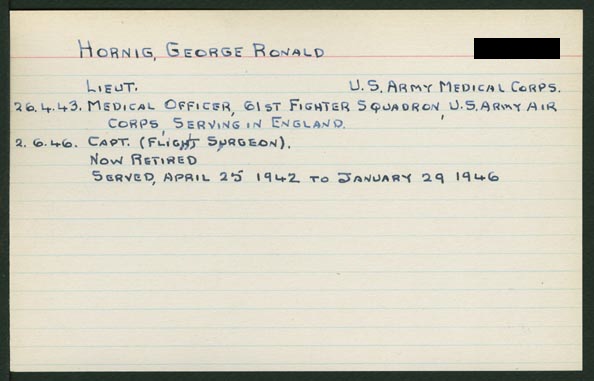 HORNIG, GEORGE RONALD
LIEUT. U.S. ARMY MEDICAL CORPS.
26.4.43. MEDICAL OFFICER, 61ST FIGHTER SQUADRON, U.S. ARMY AIR
CORPS, SERVING IN ENGLAND.
2.6.46. CAPT. (FLIGHT SURGEON).
NOW RETIRED
SERVED, APRIL 25 1942 TO JANUARY 29 1946